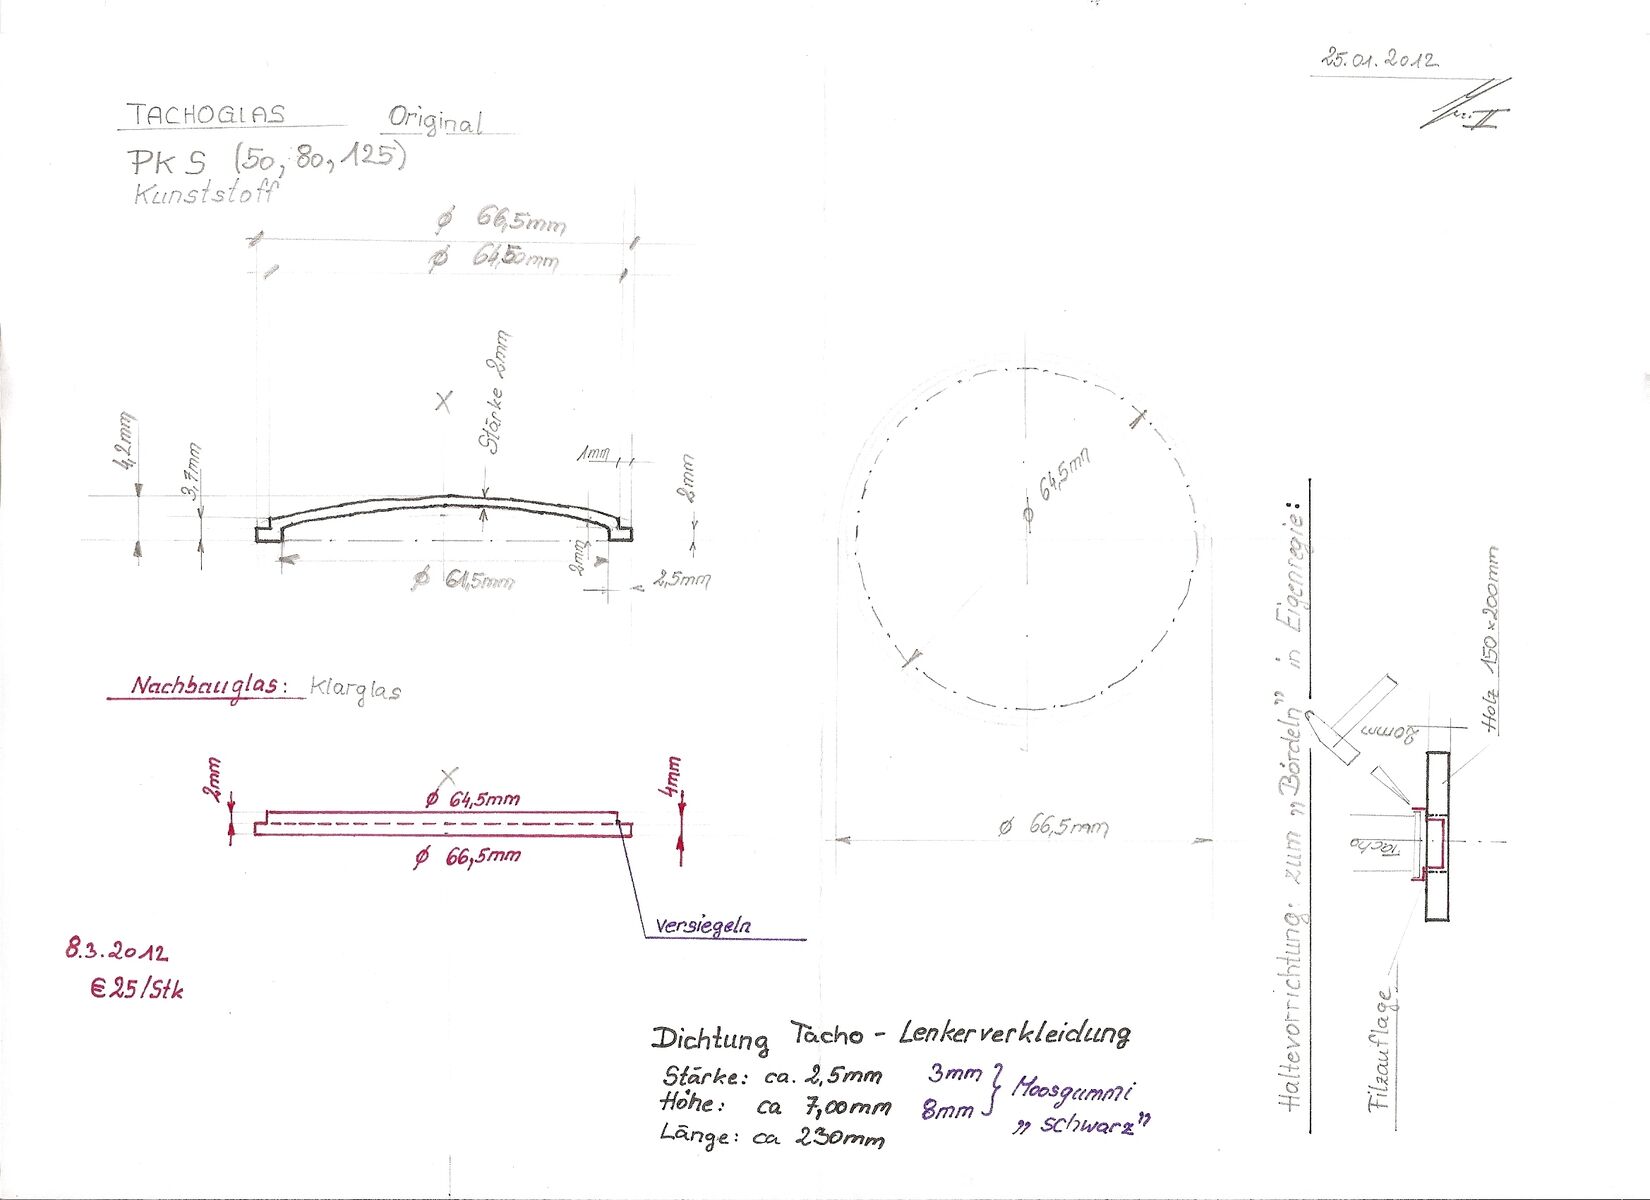 25.01.2012
TACHOGLAS Original
PK S (50, 80, 125)
Kunststoff
ϕ 66,5mm
ϕ 64,50mm
Stärke 2mm
X
4,2mm
3,7mm
1mm
2mm
2mm
ϕ 61,5mm
2,5mm
64,5mm
ϕ 66,5mm
Nachbauglas: Klarglas
X
2mm
ϕ 64,5mm
4mm
ϕ 66,5mm
versiegeln
8.3.2012
€25/Stk
Dichtung Tacho - Lenkerverkleidung
Stärke: ca. 2,5mm 3mm
Höhe: ca 7,00mm 8mm
Moosgummi
„schwarz"
Länge: ca 230mm
Haltevorrichtung: zum „Bördeln" in Eigenregie:
20mm
Holz 150x200mm
Tacho
Filzauflage